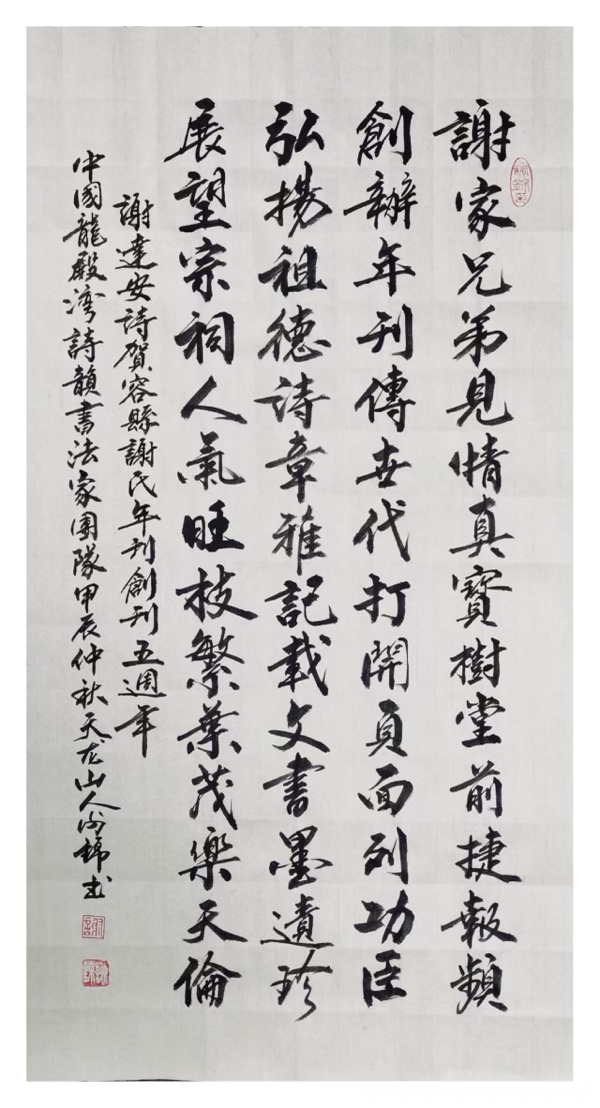 謝家兄弟見情真寶樹堂前捷報頻
創辦年刊傳世代打開頁面列功臣
弘揚祖德詩章雅記載文書墨遺珍
展望宗祠人氣旺枝繁葉茂樂天倫
謝達安詩賀容縣謝氏年刊創刊五週年
中國龍殿湾詩韻書法家團隊甲辰仲秋天龙山人尚錦书